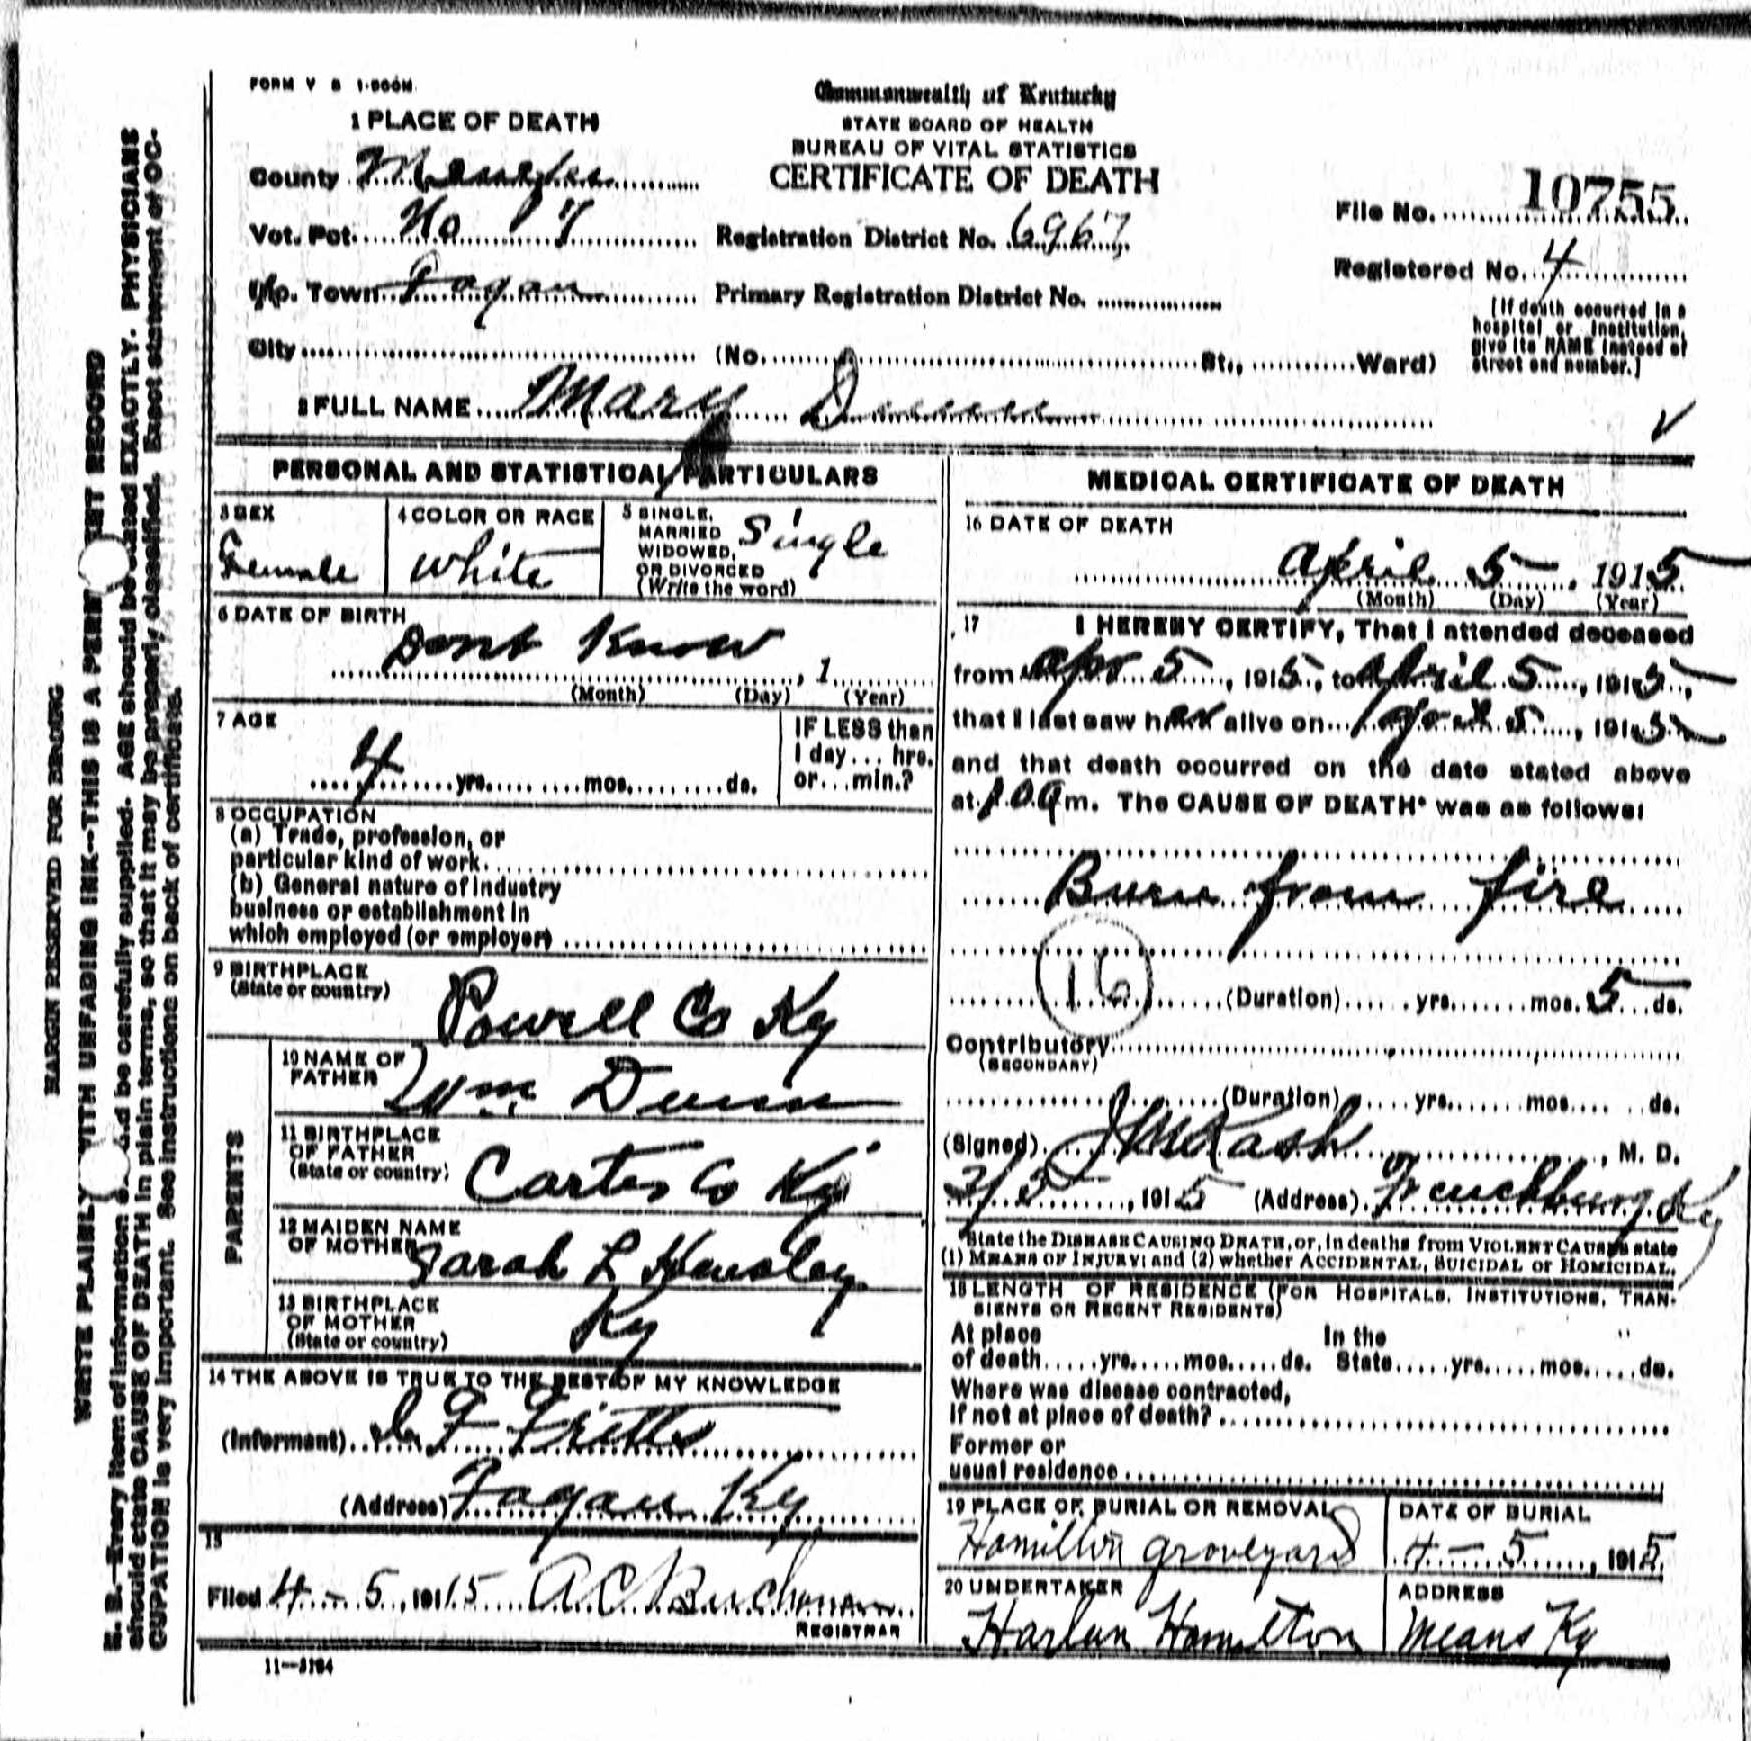 FORM V S 1-500M.
Commonwealth of Kentucky
STATE BOARD OF HEALTH
BUREAU OF VITAL STATISTICS
CERTIFICATE OF DEATH
1 PLACE OF DEATH
County Menefee
Vot. Pct. No 7
Registration District No. 6967
File No. 10755
Inc. Town Fagan
Primary Registration District No.
Registered No. 4
City (No. St., Ward)
(If death occurred in a hospital or institution, give its NAME instead of street and number.)
2 FULL NAME Mary Dunn
PERSONAL AND STATISTICAL PARTICULARS
3 SEX
Female
4 COLOR OR RACE
White
5 SINGLE, MARRIED WIDOWED, OR DIVORCED (Write the word)
Single
6 DATE OF BIRTH
Dont Know , 1
(Month) (Day) (Year)
7 AGE
4 yrs. mos. ds.
IF LESS than 1 day... hrs. or...min.?
8 OCCUPATION
(a) Trade, profession, or
particular kind of work.
(b) General nature of Industry
business or establishment in
which employed (or employer)
9 BIRTHPLACE
(State or country)
Powell Co Ky
PARENTS
10 NAME OF FATHER
Wm Dunn
11 BIRTHPLACE OF FATHER (State or country)
Carter Co Ky
12 MAIDEN NAME OF MOTHER
Sarah L Hensley
13 BIRTHPLACE OF MOTHER (State or country)
Ky
14 THE ABOVE IS TRUE TO THE BEST OF MY KNOWLEDGE
(Informant) F Fritts
(Address) Fagan Ky
15
Filed 4-5, 1915 A C Buchanan
REGISTRAR
11-3184
MEDICAL CERTIFICATE OF DEATH
16 DATE OF DEATH
April 5 , 1915
(Month) (Day) (Year)
17 I HEREBY CERTIFY, That I attended deceased
from Apr 5, 1915, to April 5, 1915,
that I last saw her alive on April 5, 1915
and that death occurred on the date stated above
at m. The CAUSE OF DEATH* was as follows:
Burn from fire
16
(Duration) yrs. mos. 5 ds.
Contributory
(SECONDARY)
(Duration) yrs. mos. ds.
(Signed) J M Kash, M. D.
, 1915 (Address) Frenchburg Ky
*State the DISEASE CAUSING DEATH, or, in deaths from VIOLENT CAUSES state
(1) MEANS OF INJURY; and (2) whether ACCIDENTAL, SUICIDAL or HOMICIDAL.
18 LENGTH OF RESIDENCE (FOR HOSPITALS, INSTITUTIONS, TRAN-
SIENTS OR RECENT RESIDENTS)
At place In the
of death yrs. mos. ds. State yrs. mos. ds.
Where was disease contracted,
If not at place of death?
Former or
usual residence
19 PLACE OF BURIAL OR REMOVAL
Hamilton graveyard
DATE OF BURIAL
4-5, 1915
20 UNDERTAKER
Harlan Hamilton
ADDRESS
Means Ky
MARGIN RESERVED FOR BINDING
WRITE PLAINLY WITH UNFADING INK--THIS IS A PERM ENT RECORD
N. B.--Every item of information should be carefully supplied. AGE should be stated EXACTLY. PHYSICIANS
should state CAUSE OF DEATH in plain terms, so that it may be properly classified. Exact statement of OC-
CUPATION is very important. See instructions on back of certificate.